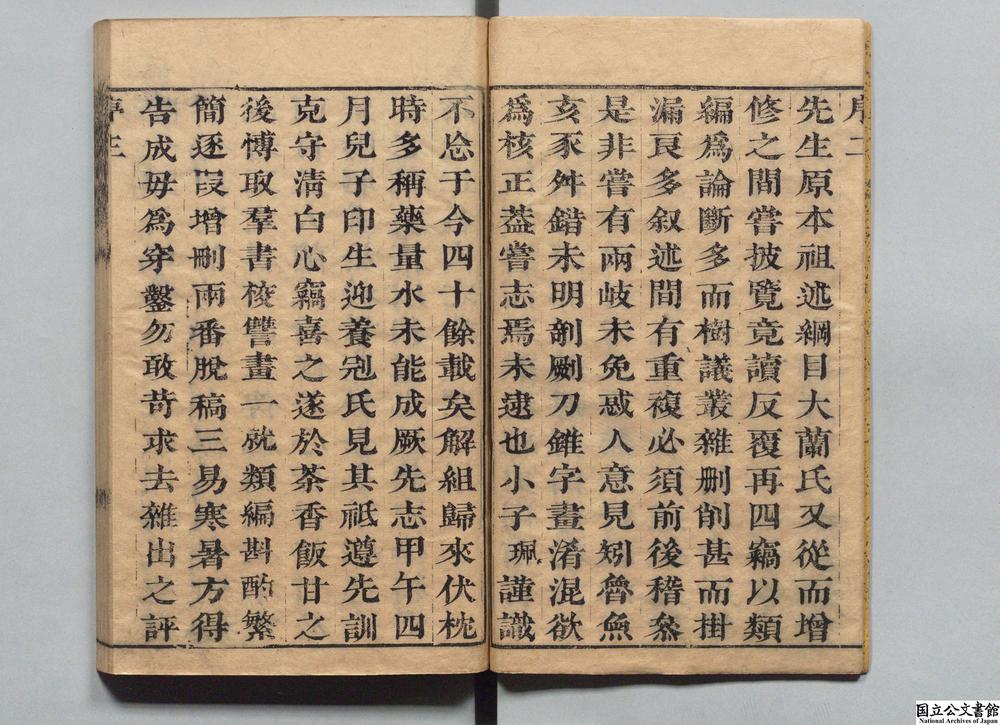 序二
先生原本祖述綱目大蘭氏又從而增
修之間嘗披覽竟讀反覆再四竊以類
編爲論斷多而樹議叢雜刪削甚而掛
漏良多叙述間有重複必須前後稽叅
是非嘗有兩岐未免惑人意見矧魯魚
亥豕舛錯未明剞劂刀錐字畫淆混欲
爲核正葢嘗志焉未逮也小子珮謹識
不忘于今四十餘載矣解組歸來伏枕
時多稱藥量水未能成厥先志甲午四
月兒子印生迎養剡氏見其祇遵先訓
克守淸白心竊喜之遂於茶香飯甘之
後博取羣書挍讐畫一就類編斟酌繁
簡逐叚增刪兩番脫稿三易寒暑方得
告成毋爲穿鑿勿敢苛求去雜出之評
序三
国立公文書館
National Archives of Japan